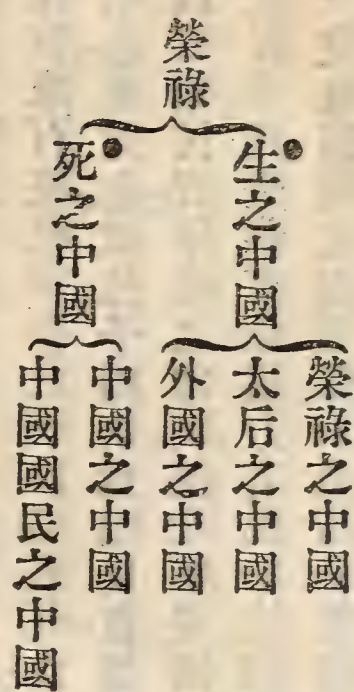 榮祿
生之中國
榮祿之中國
太后之中國
外國之中國
死之中國
中國之中國
中國國民之中國